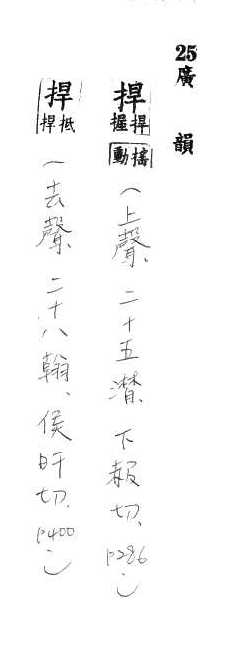 25廣韻
捍捍握搖動(上聲、二十五潸、下赧切、p286)
捍抵捍(去聲、二十八翰、侯旰切、p400)